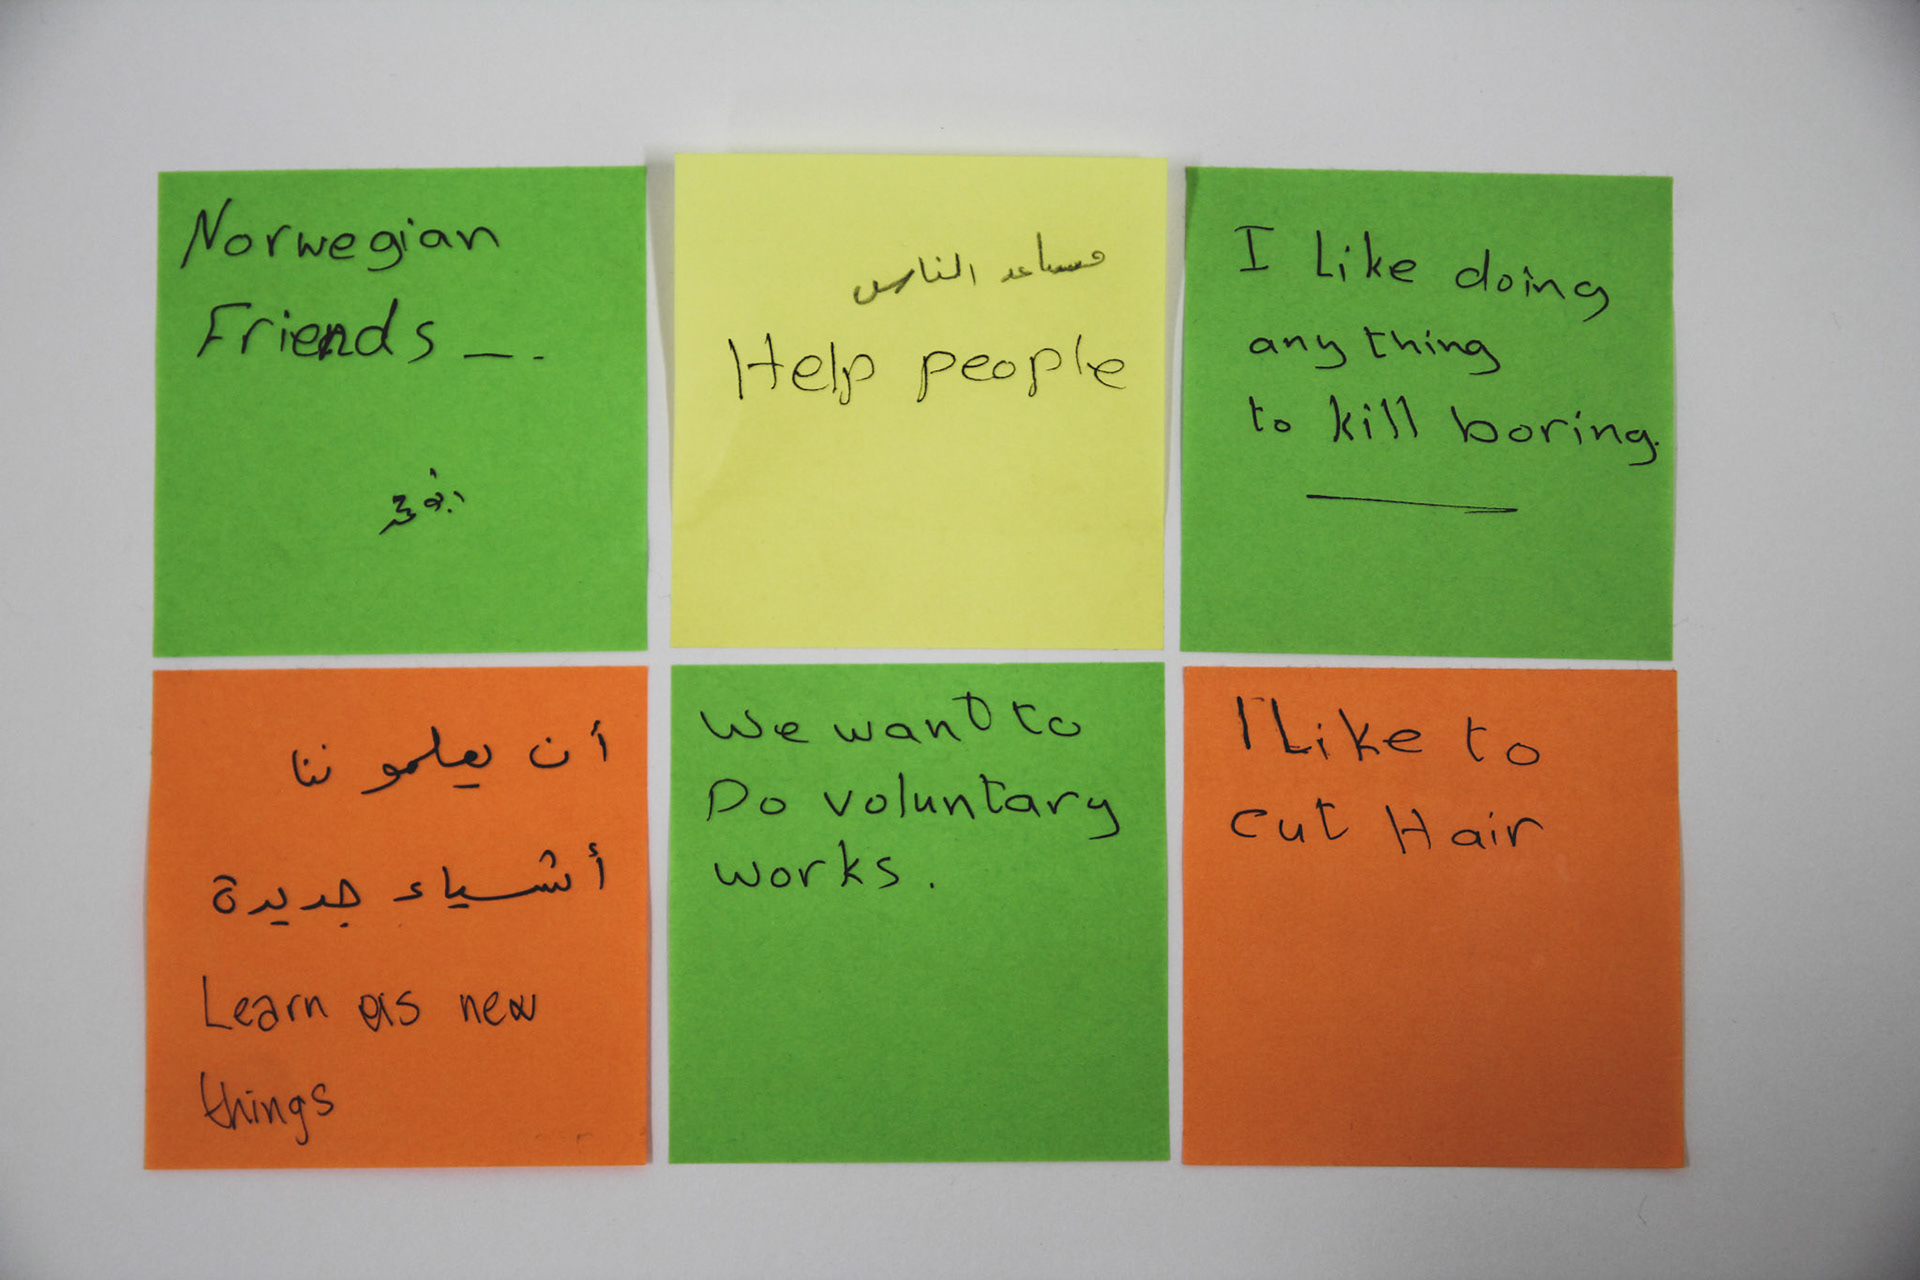 Norwegian
Friends _ .
مساعد الناس
Help people
I Like doing
any thing
to kill boring.
أن يعلمو ننا
أشياء جديدة
Learn as new
things
We want to
Do voluntary
works.
I Like to
cut Hair